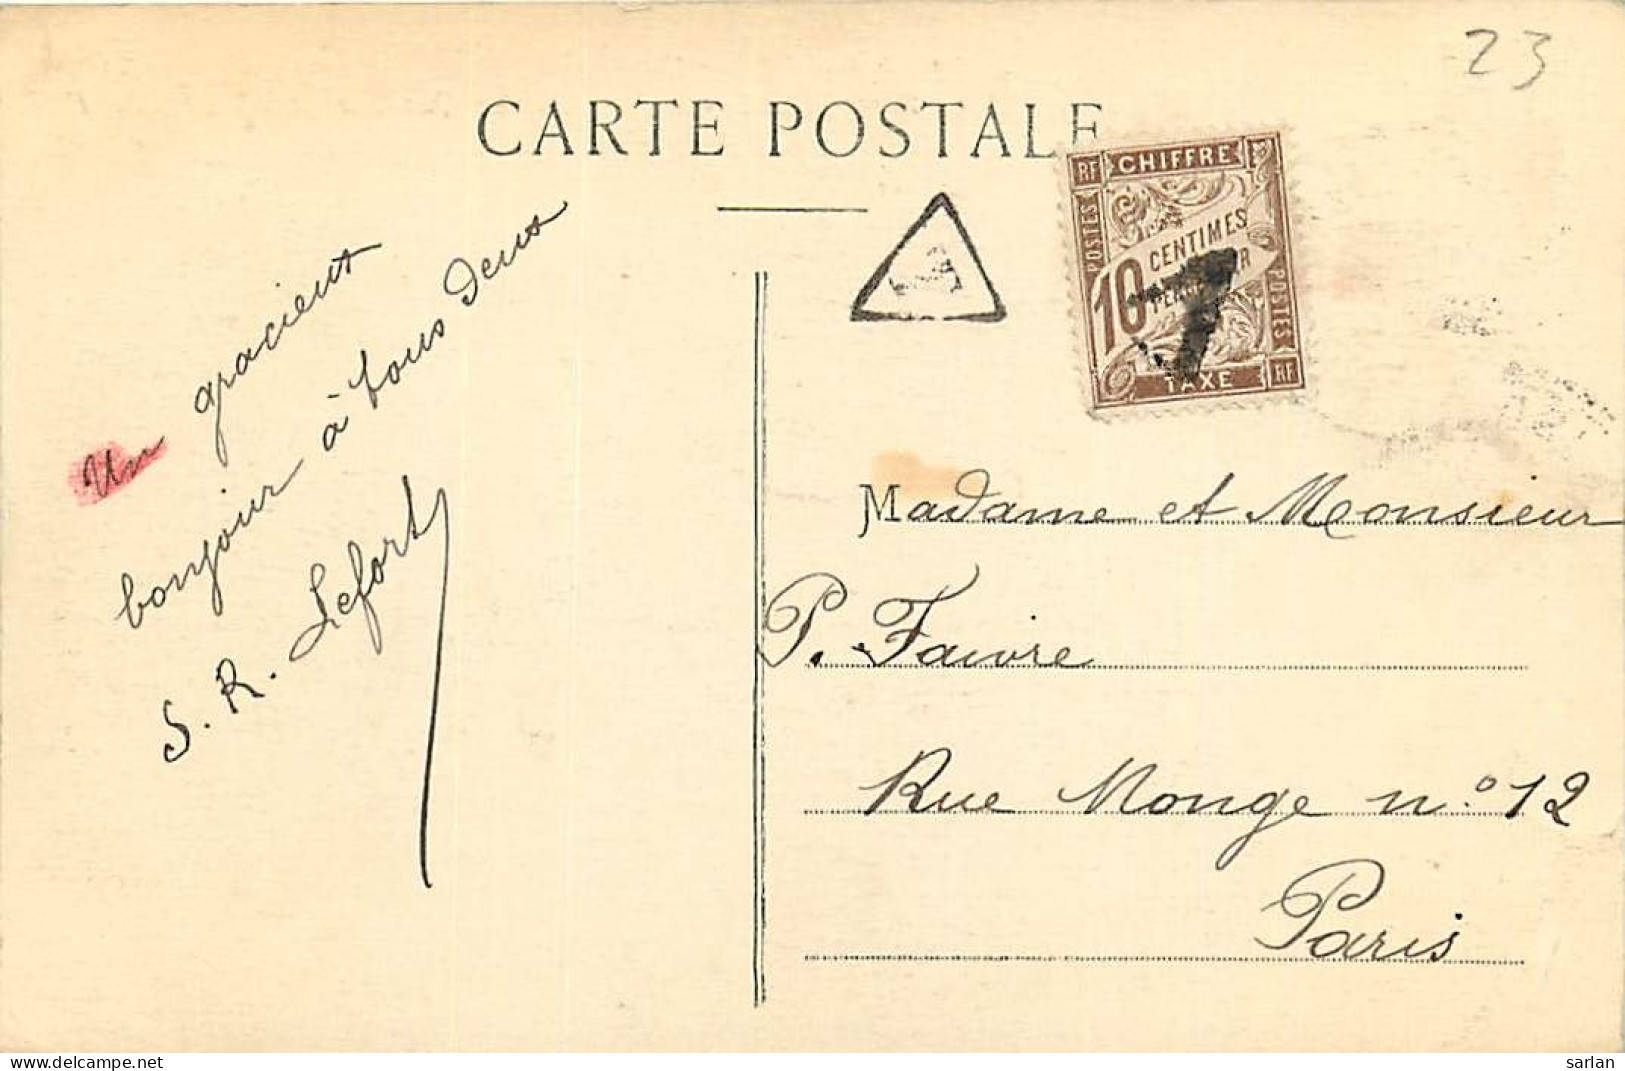 23
CARTE POSTALE
RF CHIFFRE
POSTES
10 CENTIMES
POSTES
TAXE RF
T
Un gracieux
bonjour à tous deux
S. R. Lefort
Madame et Monsieur
P. Faivre
Rue Monge n.º 12
Paris
delcampe.net
sarlan